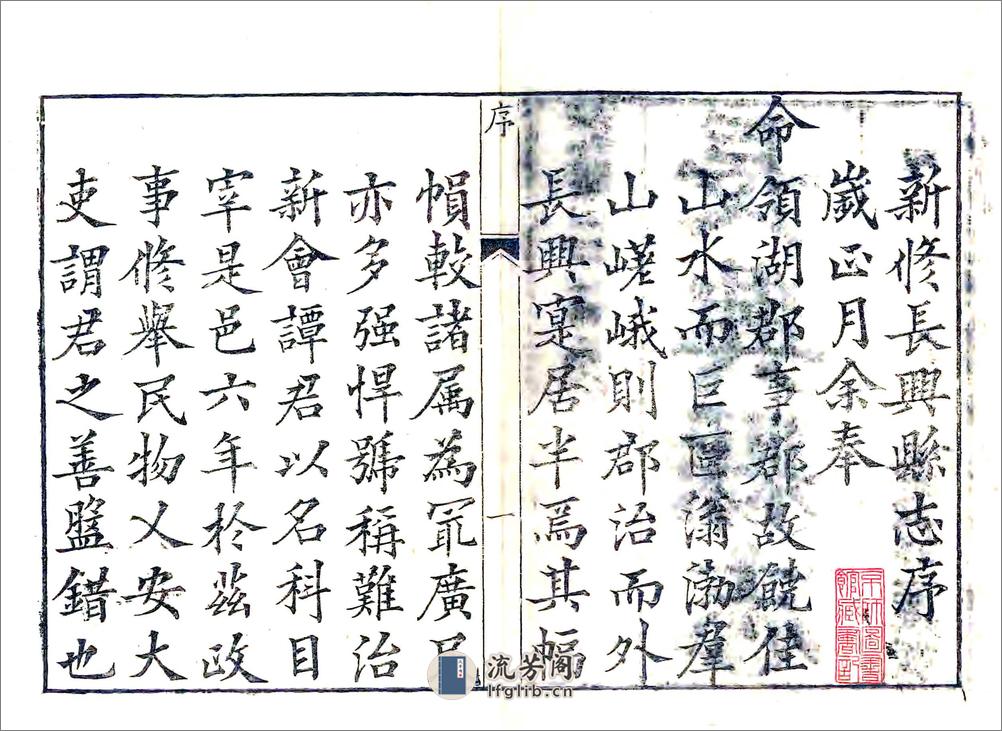 新修長興縣志序
歲正月余奉
命領湖郡事郡故饒佳
山水而巨區滃渤羣
山嵯峨則郡治而外
長興寔居半焉其幅
序
一
幀較諸属為㝡廣民
亦多强悍號稱難治
新會譚君以名科目
宰是邑六年於茲政
事修舉民物乂安大
吏謂君之善盤錯也
流芳閣
lfglib.cn